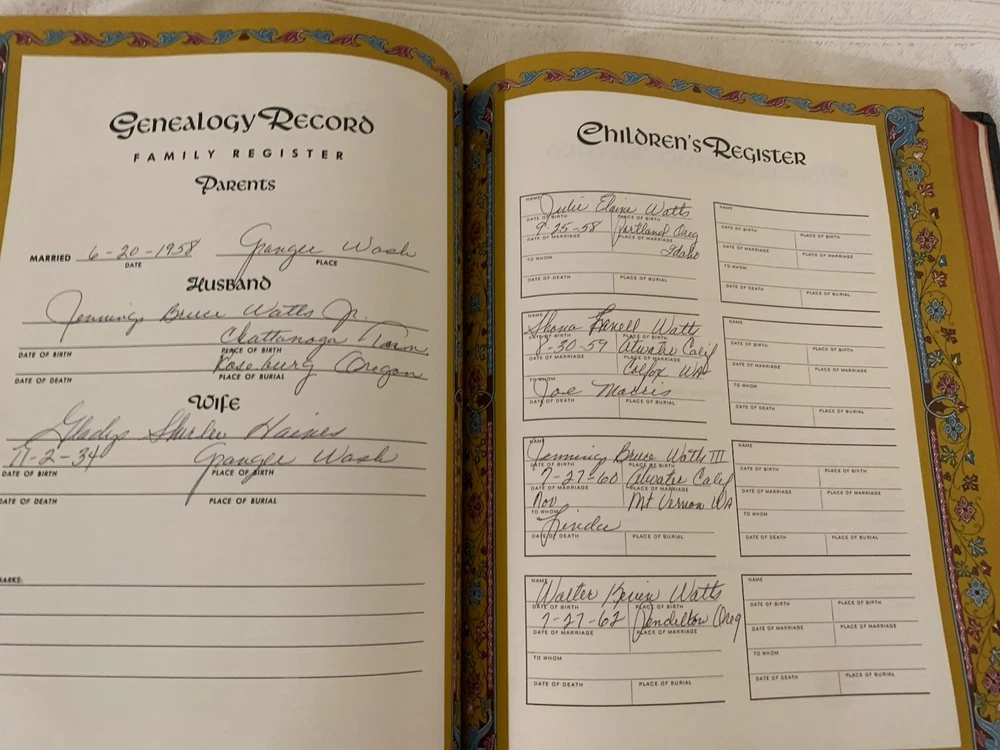 Genealogy Record
FAMILY REGISTER
Parents
MARRIED 6-20-1958 Granger Wash
DATE PLACE
Husband
Jennings Bruce Watts Jr.
Chattanooga Tenn.
DATE OF BIRTH PLACE OF BIRTH
Roseburg Oregon
DATE OF DEATH PLACE OF BURIAL
Wife
Gladys Shirlee Haines
11-2-34 Granger Wash
DATE OF BIRTH PLACE OF BIRTH
DATE OF DEATH PLACE OF BURIAL
ARKS:
Children's Register
NAME Julie Elaine Watts
DATE OF BIRTH PLACE OF BIRTH
9-25-58 Portland Oreg
DATE OF MARRIAGE PLACE OF MARRIAGE
Idaho
TO WHOM
DATE OF DEATH PLACE OF BURIAL
NAME Shona Watts
DATE OF BIRTH PLACE OF BIRTH
8-30-59 Atwater Calif
DATE OF MARRIAGE PLACE OF MARRIAGE
Colfax WA
TO WHOM
Joe Madris
DATE OF DEATH PLACE OF BURIAL
NAME
Jennings Bruce Watts III
DATE OF BIRTH PLACE OF BIRTH
7-27-60 Atwater Calif
DATE OF MARRIAGE PLACE OF MARRIAGE
Nov Mt Vernon WA
TO WHOM
Linda
DATE OF DEATH PLACE OF BURIAL
NAME
Walter Kevin Watts
DATE OF BIRTH PLACE OF BIRTH
7-27-62 Pendelton Oreg
DATE OF MARRIAGE PLACE OF MARRIAGE
TO WHOM
DATE OF DEATH PLACE OF BURIAL
NAME
DATE OF BIRTH PLACE OF BIRTH
DATE OF MARRIAGE PLACE OF MARRIAGE
TO WHOM
DATE OF DEATH PLACE OF BURIAL
NAME
DATE OF BIRTH PLACE OF BIRTH
DATE OF MARRIAGE PLACE OF MARRIAGE
TO WHOM
DATE OF DEATH PLACE OF BURIAL
NAME
DATE OF BIRTH PLACE OF BIRTH
DATE OF MARRIAGE PLACE OF MARRIAGE
TO WHOM
DATE OF DEATH PLACE OF BURIAL
NAME
DATE OF BIRTH PLACE OF BIRTH
DATE OF MARRIAGE PLACE OF MARRIAGE
TO WHOM
DATE OF DEATH PLACE OF BURIAL